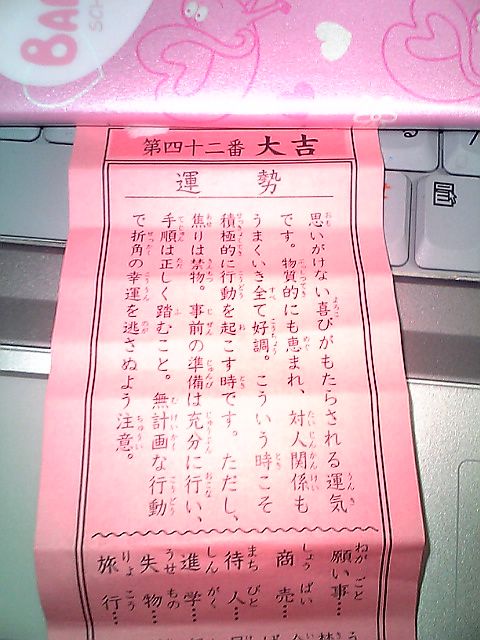 BA
SCH
第四十二番 大吉
運勢
思いがけない喜びがもたらされる運気
です。物質的にも恵まれ、対人関係も
うまくいき全て好調。こういう時こそ
積極的に行動を起こす時です。ただし、
焦りは禁物。事前の準備は充分に行い、
手順は正しく踏むこと。無計画な行動
で折角の幸運を逃さぬよう注意。
願い事…
商売…
待人…
進学…
失物…
旅行…